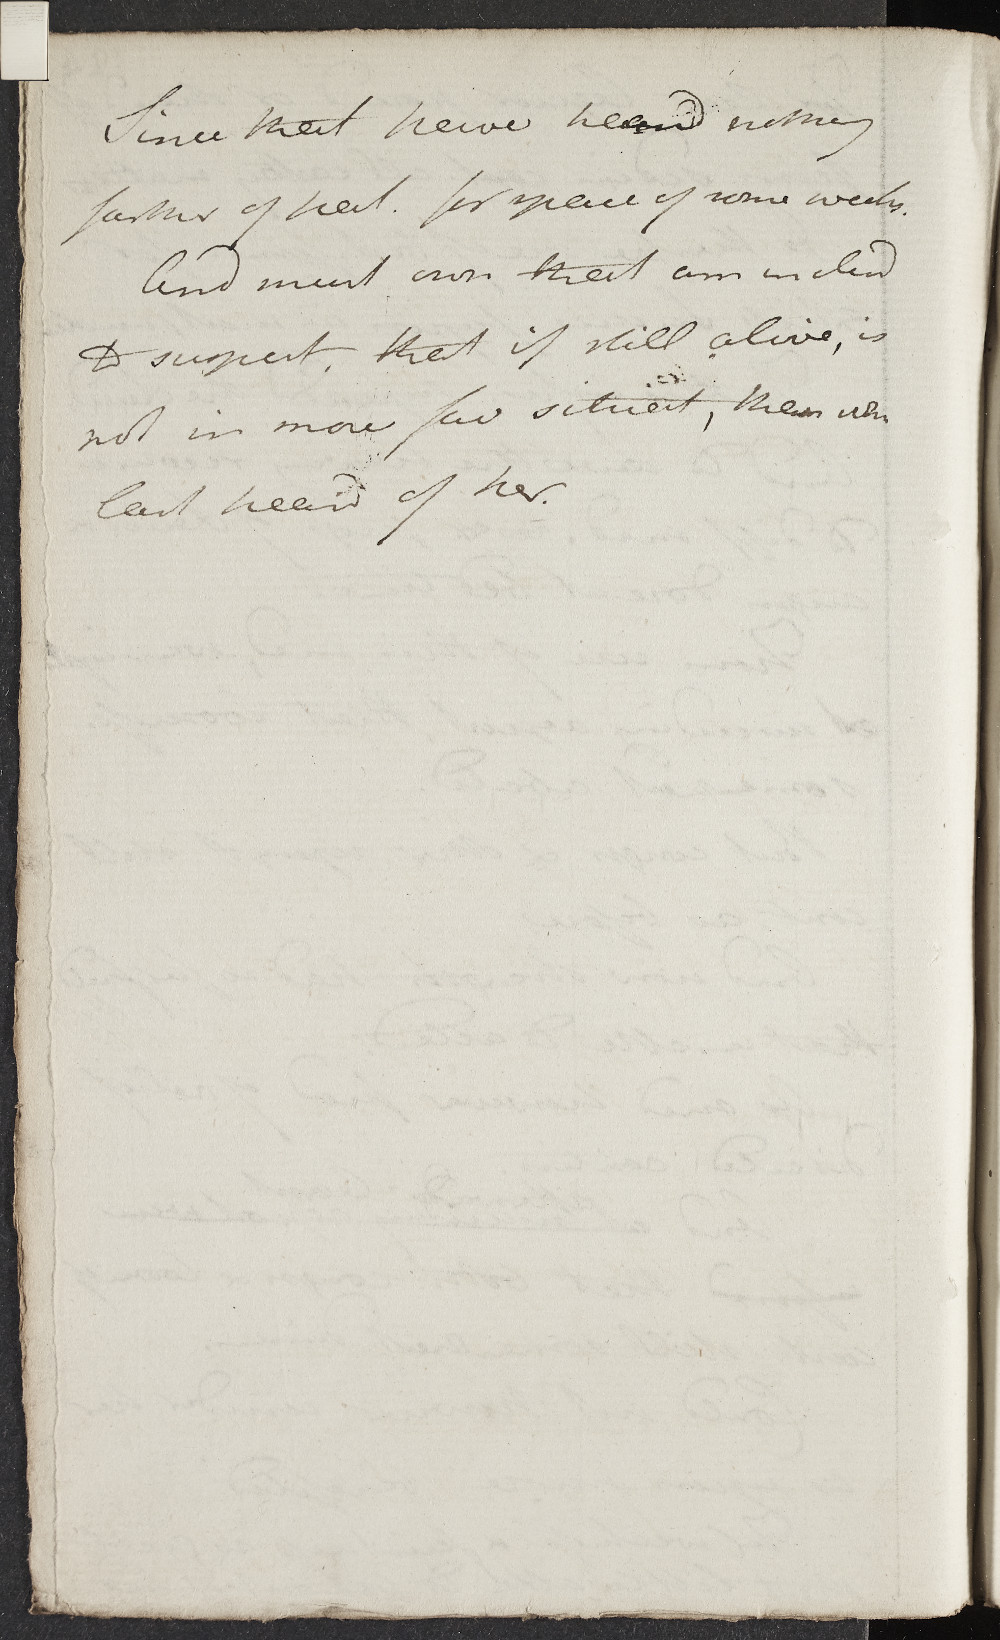 Since that have heard nothing
farther of heal. for space of some weeks.
And must own that am inclind
to suspect, that if still alive, is
not in more fav situat, than wn
last heard of her.